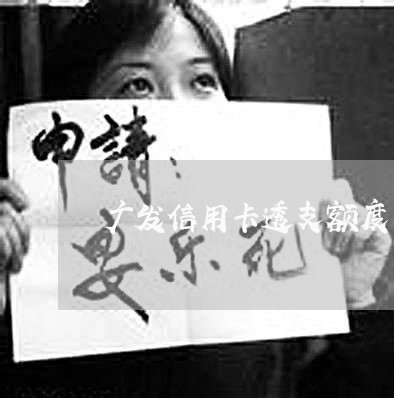 申請：
广发信用卡透支额度
安乐死